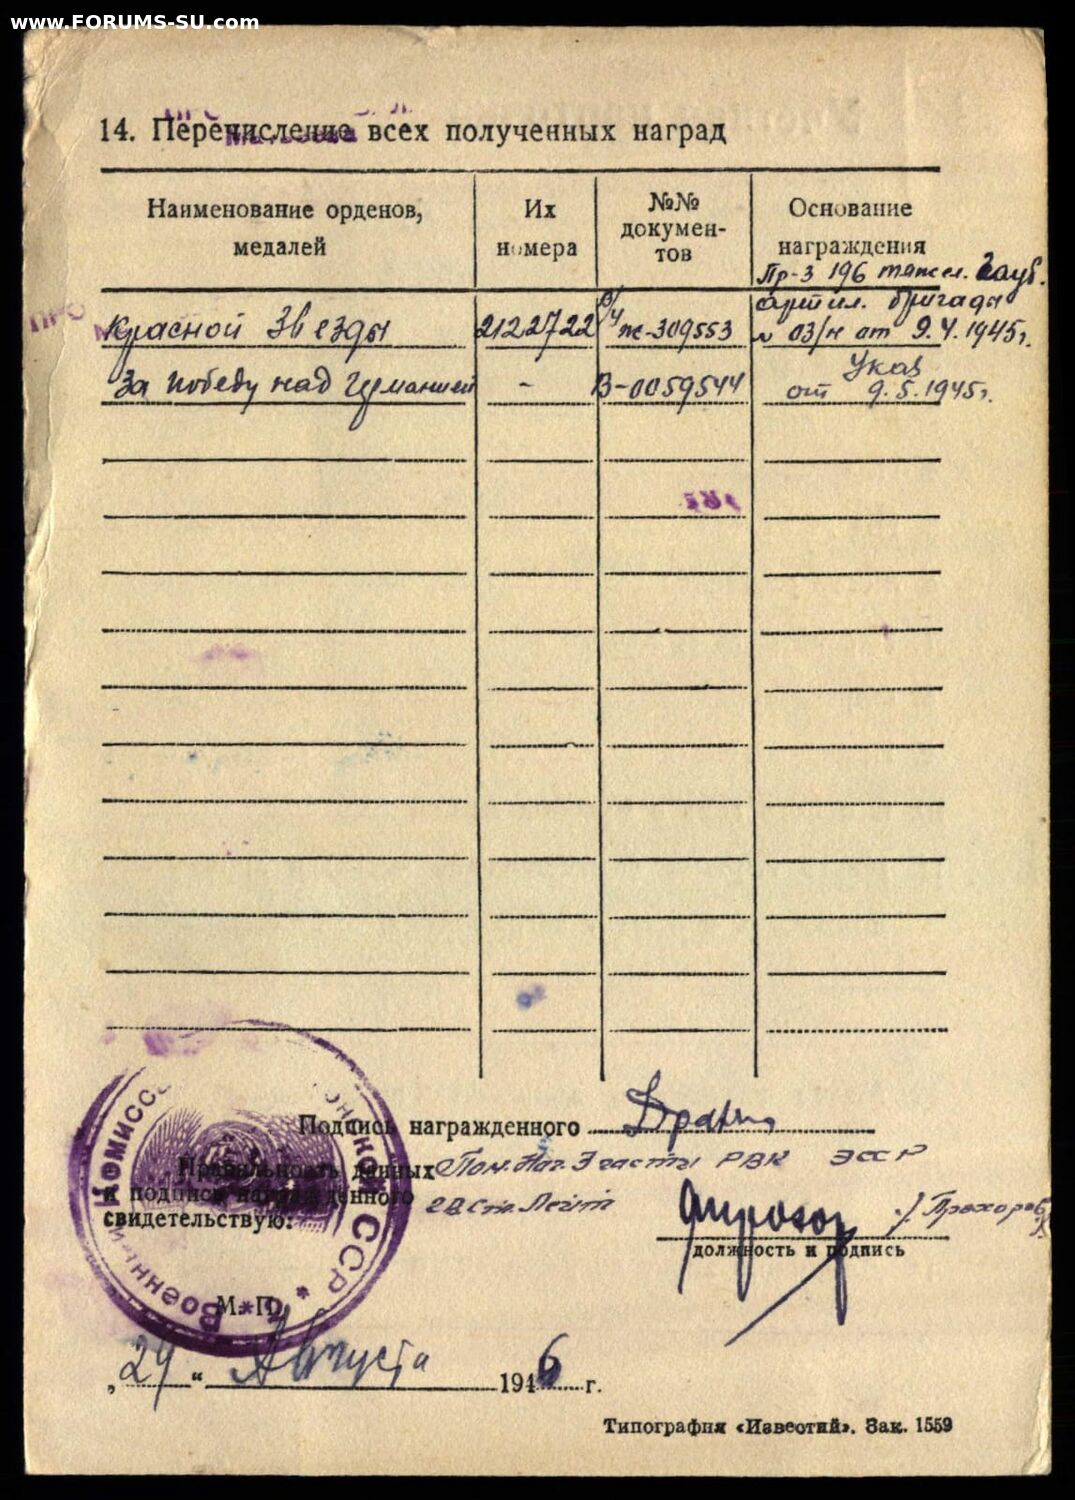 www.FORUMS-SU.com
14. Перечисление всех полученных наград
Наименование орденов, медалей
Их номера
№№ докумен-тов
Основание награждения
Пр-з 196 тяжел. Гауб.
Красной Звезды 2122722 ж-309553 артил. бригады
№ 03/н от 9.4.1945г.
За победу над Германией - В-0059544 Указ
от 9.5.1945г.
Подпись награжденного
Правильность данных Пом. Нач. 3 части РВК ЭССР
и подписи награжденного Гв. Ст. Лейт
свидетельствую: /Прохоров/
должность и подпись
М. П.
„29“ Августа 1946 г.
Типография «Известий». Зак. 1559